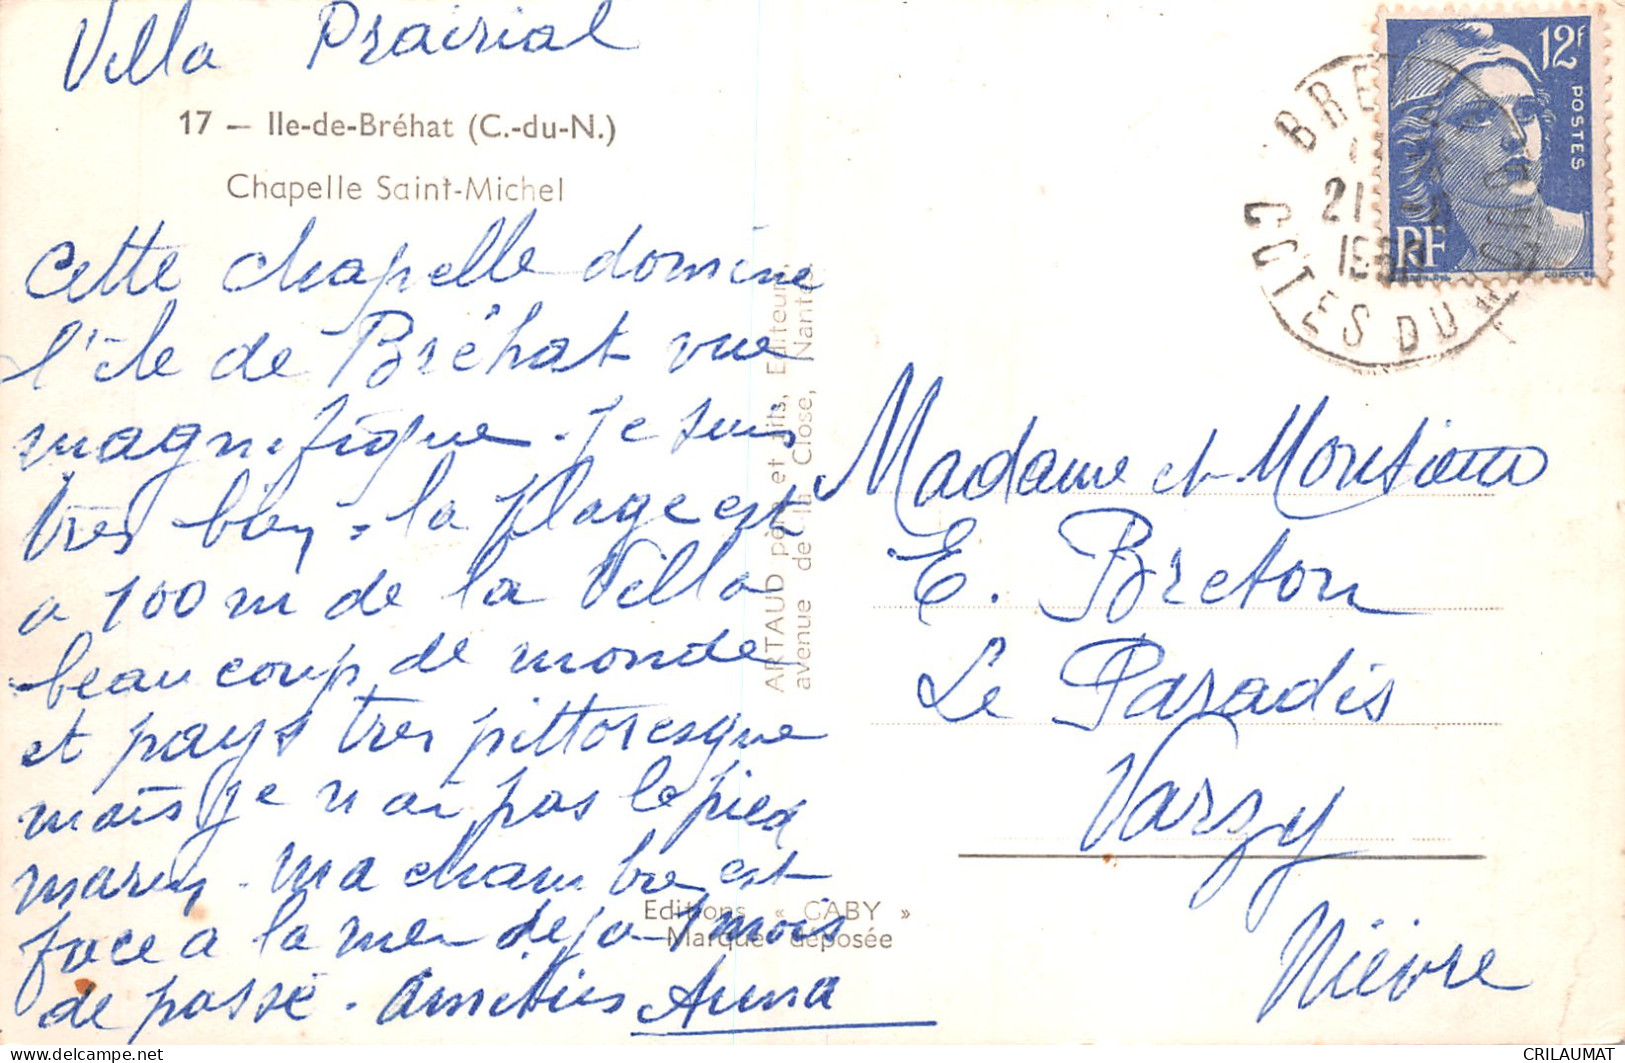 Villa Prairial
17 — Ile-de-Bréhat (C.-du-N.)
Chapelle Saint-Michel
Cette chapelle domine
l'île de Bréhat vue
magnifique. je suis
très bien, la plage est
a 100 m de la Villa
beaucoup de monde
et pays tres pittoresque
mais je n ai pas le pied
marin. ma chambre est
face a la mer deja 1 mois
de passé. Amitiés Anna
ARTAUD père et fils, Editeurs
avenue de la Close, Nantes
Editions « GABY »
Marque déposée
12F
POSTES
RF
BREHAT
21
195
COTES DU NORD
Madame et Monsieur
E. Breton
Le Paradis
Varzy
Nièvre
CRILAUMAT